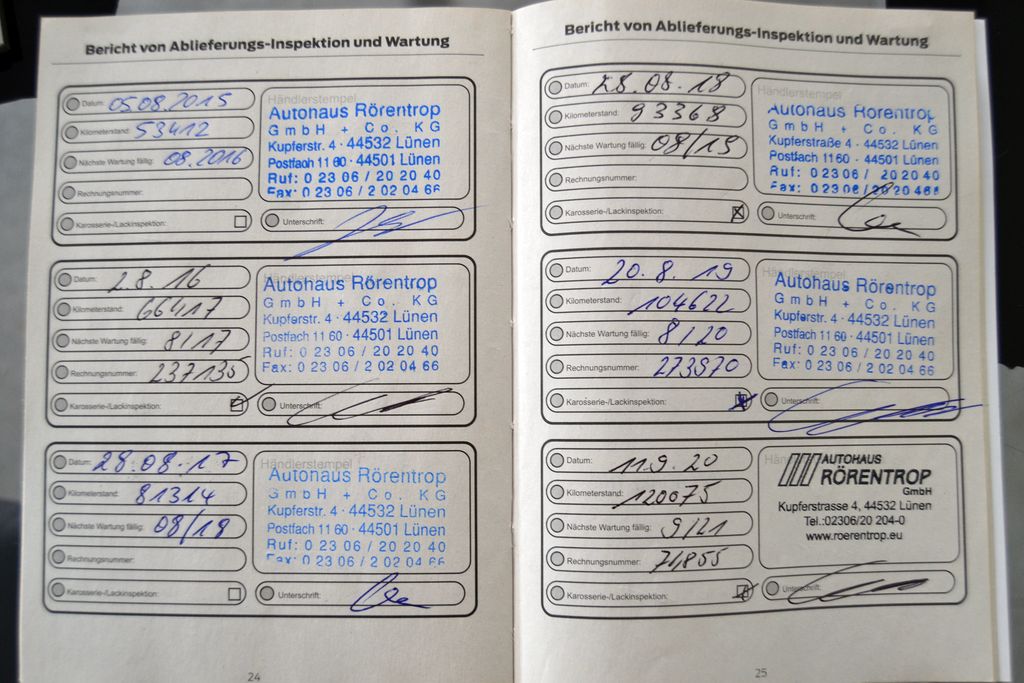 Bericht von Ablieferungs-Inspektion und Wartung
Datum: 05.08.2015
Kilometerstand: 53412
Nächste Wartung fällig: 08.2016
Rechnungsnummer:
Karosserie-/Lackinspektion:
Händlerstempel
Autohaus Rörentrop
GmbH + Co. KG
Kupferstr. 4 · 44532 Lünen
Postfach 11 60 · 44501 Lünen
Ruf: 0 23 06 / 20 20 40
Fax: 0 23 06 / 2 02 04 66
Unterschrift:
Datum: 2.8.16
Kilometerstand: 66417
Nächste Wartung fällig: 8/17
Rechnungsnummer: 237135
Karosserie-/Lackinspektion:
Händlerstempel
Autohaus Rörentrop
GmbH + Co. KG
Kupferstr. 4 · 44532 Lünen
Postfach 11 60 · 44501 Lünen
Ruf: 0 23 06 / 20 20 40
Fax: 0 23 06 / 2 02 04 66
Unterschrift:
Datum: 28.08.17
Kilometerstand: 81314
Nächste Wartung fällig: 08/18
Rechnungsnummer:
Karosserie-/Lackinspektion:
Händlerstempel
Autohaus Rörentrop
GmbH + Co. KG
Kupferstr. 4 · 44532 Lünen
Postfach 11 60 · 44501 Lünen
Ruf: 0 23 06 / 20 20 40
Fax: 0 23 06 / 2 02 04 66
Unterschrift:
24
Bericht von Ablieferungs-Inspektion und Wartung
Datum: 28.08.18
Kilometerstand: 93368
Nächste Wartung fällig: 08/19
Rechnungsnummer:
Karosserie-/Lackinspektion:
Händlerstempel
Autohaus Rörentrop
GmbH + Co. KG
Kupferstraße 4 · 44532 Lünen
Postfach 1160 · 44501 Lünen
Ruf: 0 23 06 / 20 20 40
Fax: 0 23 06 / 20 20 466
Unterschrift:
Datum: 20.8.19
Kilometerstand: 104622
Nächste Wartung fällig: 8/20
Rechnungsnummer: 273970
Karosserie-/Lackinspektion:
Händlerstempel
Autohaus Rörentrop
GmbH + Co. KG
Kupferstr. 4 · 44532 Lünen
Postfach 11 60 · 44501 Lünen
Ruf: 0 23 06 / 20 20 40
Fax: 0 23 06 / 2 02 04 66
Unterschrift:
Datum: 11.9.20
Kilometerstand: 120075
Nächste Wartung fällig: 9/21
Rechnungsnummer: 71855
Karosserie-/Lackinspektion:
AUTOHAUS
RÖRENTROP
GmbH
Kupferstrasse 4, 44532 Lünen
Tel.:02306/20 204-0
www.roerentrop.eu
Unterschrift:
25